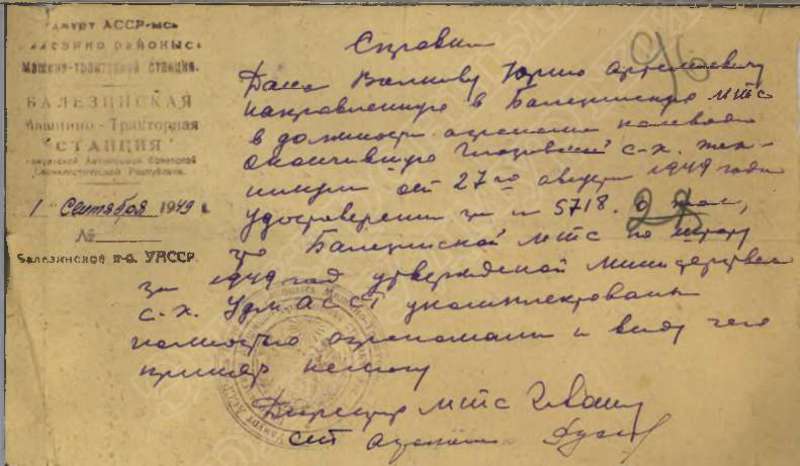 УДМУРТ АССР-ысь
Машино-тракторной станция.
БАЛЕЗИНСКАЯ
Машино-Тракторная
СТАНЦИЯ
Удмуртской Автономной Советской
Социалистической Республики.
1 Сентября 1949 г.
№
Балезинское п-о. УАССР.
96
Справка
Дана Волкову Юрию Артемьевичу
направленную в Балезинскую МТС
в должности агронома полевода
окончившую Глазовский с-х. тех-
никум от 27го августа 1949 года
удостоверении за № 5718. о том,
28
что Балезинской МТС по штату
за 1949 год утвержденой Министерством
с-х. Удм АССР укомплектованы
полностью агрономами и виду чего
принять не могу
Директор МТС
Ст агроном